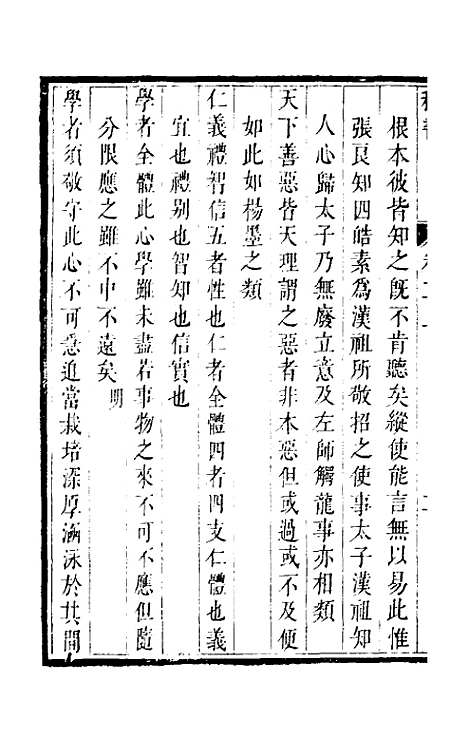 根本彼皆知之旣不肯聽矣縱使能言無以易此惟
張良知四皓素爲漢祖所敬招之使事太子漢祖知
人心歸太子乃無廢立意及左師觸龍事亦相類
天下善惡皆天理謂之惡者非本惡但或過或不及便
如此如楊墨之類
仁義禮智信五者性也仁者全體四者四支仁體也義
宜也禮别也智知也信實也
學者全體此心學雖未盡若事物之來不可不應但隨
分限應之雖不中不遠矣明
學者須敬守此心不可急迫當栽培深厚涵泳於其間